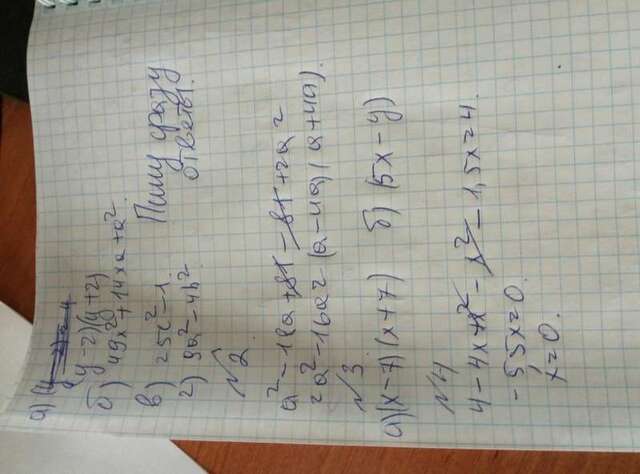 а) (4
(y-2)(y+2)
б) 49x²+14xa+a²
в) 25c²-1
г) 9a²-4b²
Пишу сразу
ответы.
№2
a²-18a+81-81+2a²
=a²-16a²=(a-4a)(a+4a).
№3.
а)(x-7)(x+7) б) (5x-y)
№4
4-4x+x²-x²-1,5x=4.
-5,5x=0
x=0.